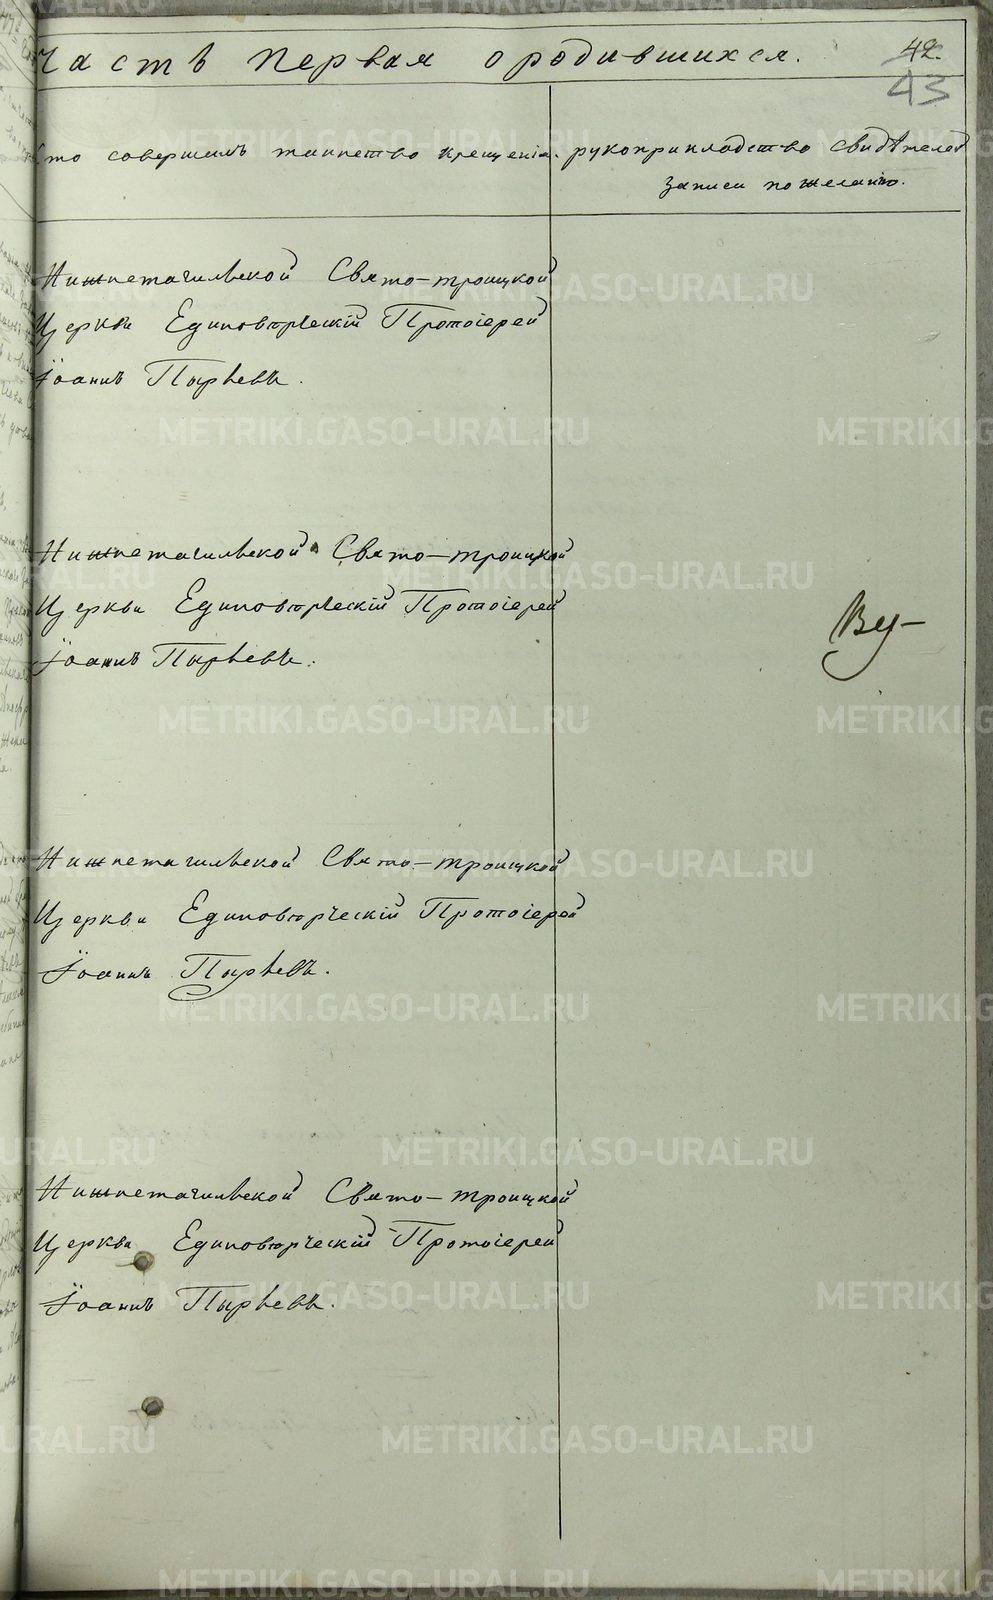 Часть первая о родившихся.
42.
43
Кто совершалъ таинство крещенія.
рукоприкладство свидѣтелей
записи по желанію.
Нижнетагильской Свято-троицкой
Церкви Единовѣрческій Протоіерей
Іоаннъ Пырьевъ.
Нижнетагильской Свято-троицкой
Церкви Единовѣрческій Протоіерей
Іоаннъ Пырьевъ.
Нижнетагильской Свято-троицкой
Церкви Единовѣрческій Протоіерей
Іоаннъ Пырьевъ.
Нижнетагильской Свято-троицкой
Церкви Единовѣрческій Протоіерей
Іоаннъ Пырьевъ.
METRIKI.GASO-URAL.RU